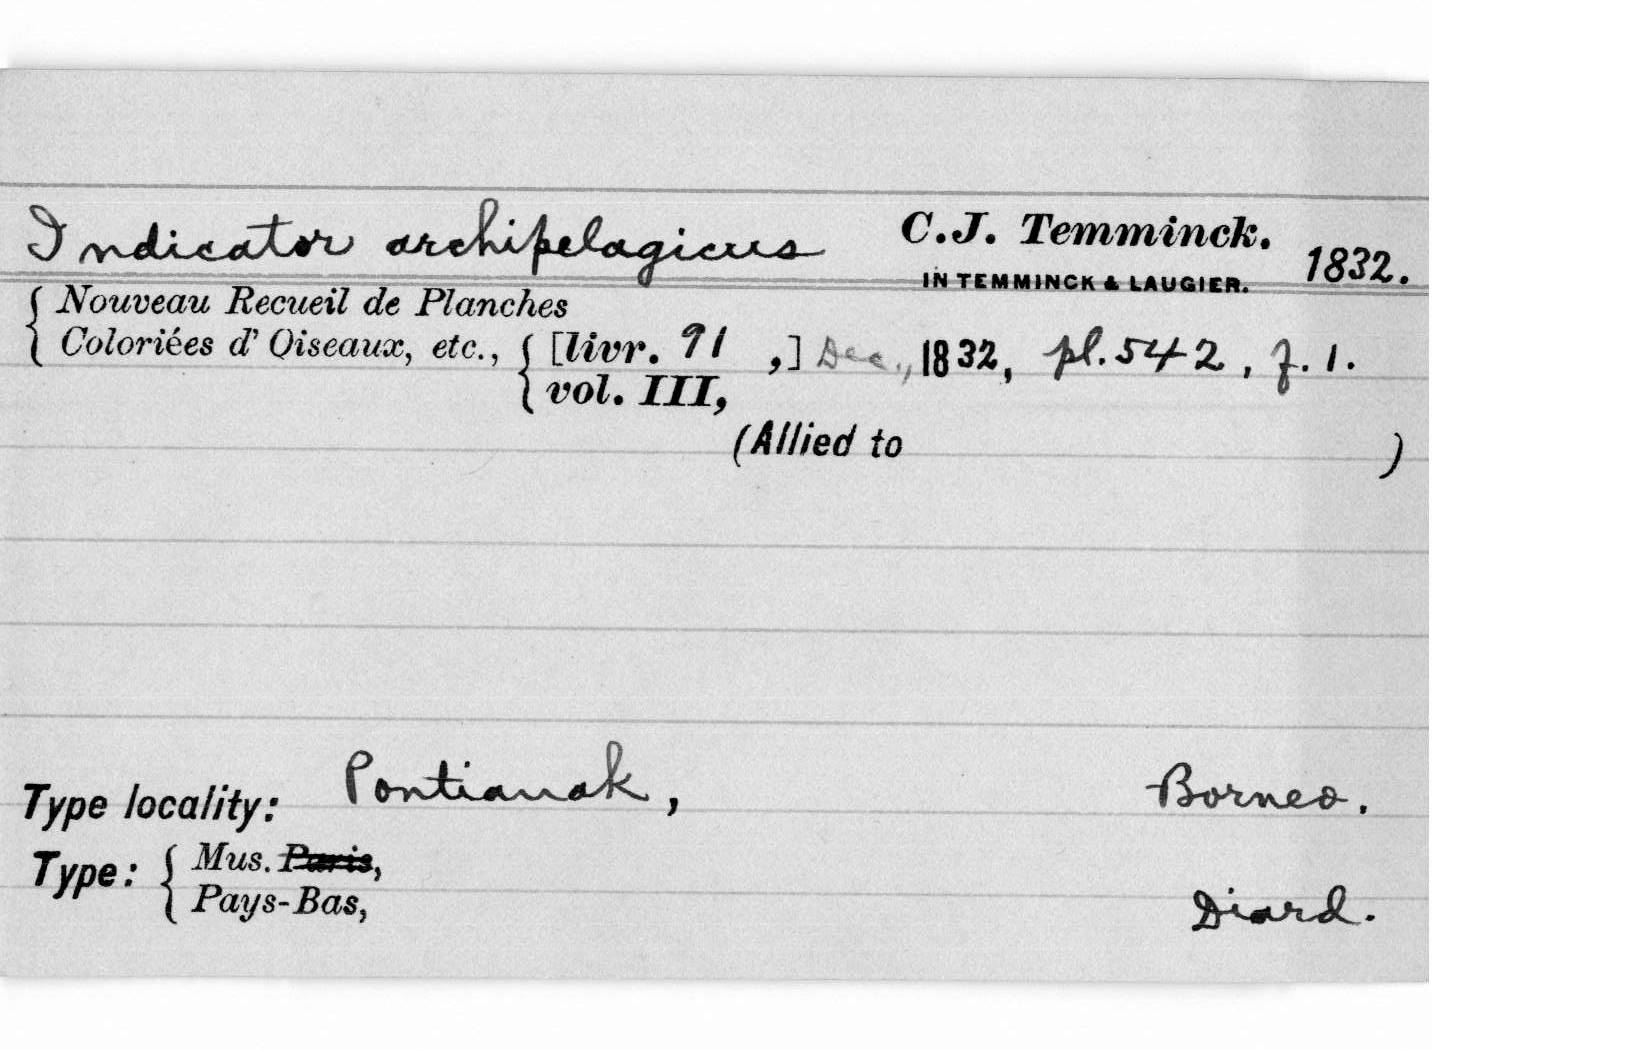 Indicator archipelagicus C.J. Temminck. 1832.
IN TEMMINCK & LAUGIER.
Nouveau Recueil de Planches
Coloriées d' Oiseaux, etc., [livr. 91 ,] Dec., 1832, pl. 542, f. 1.
vol. III,
(Allied to )
Type locality: Pontianak, Borneo.
Type: Mus. Paris,
Pays-Bas, Diard.